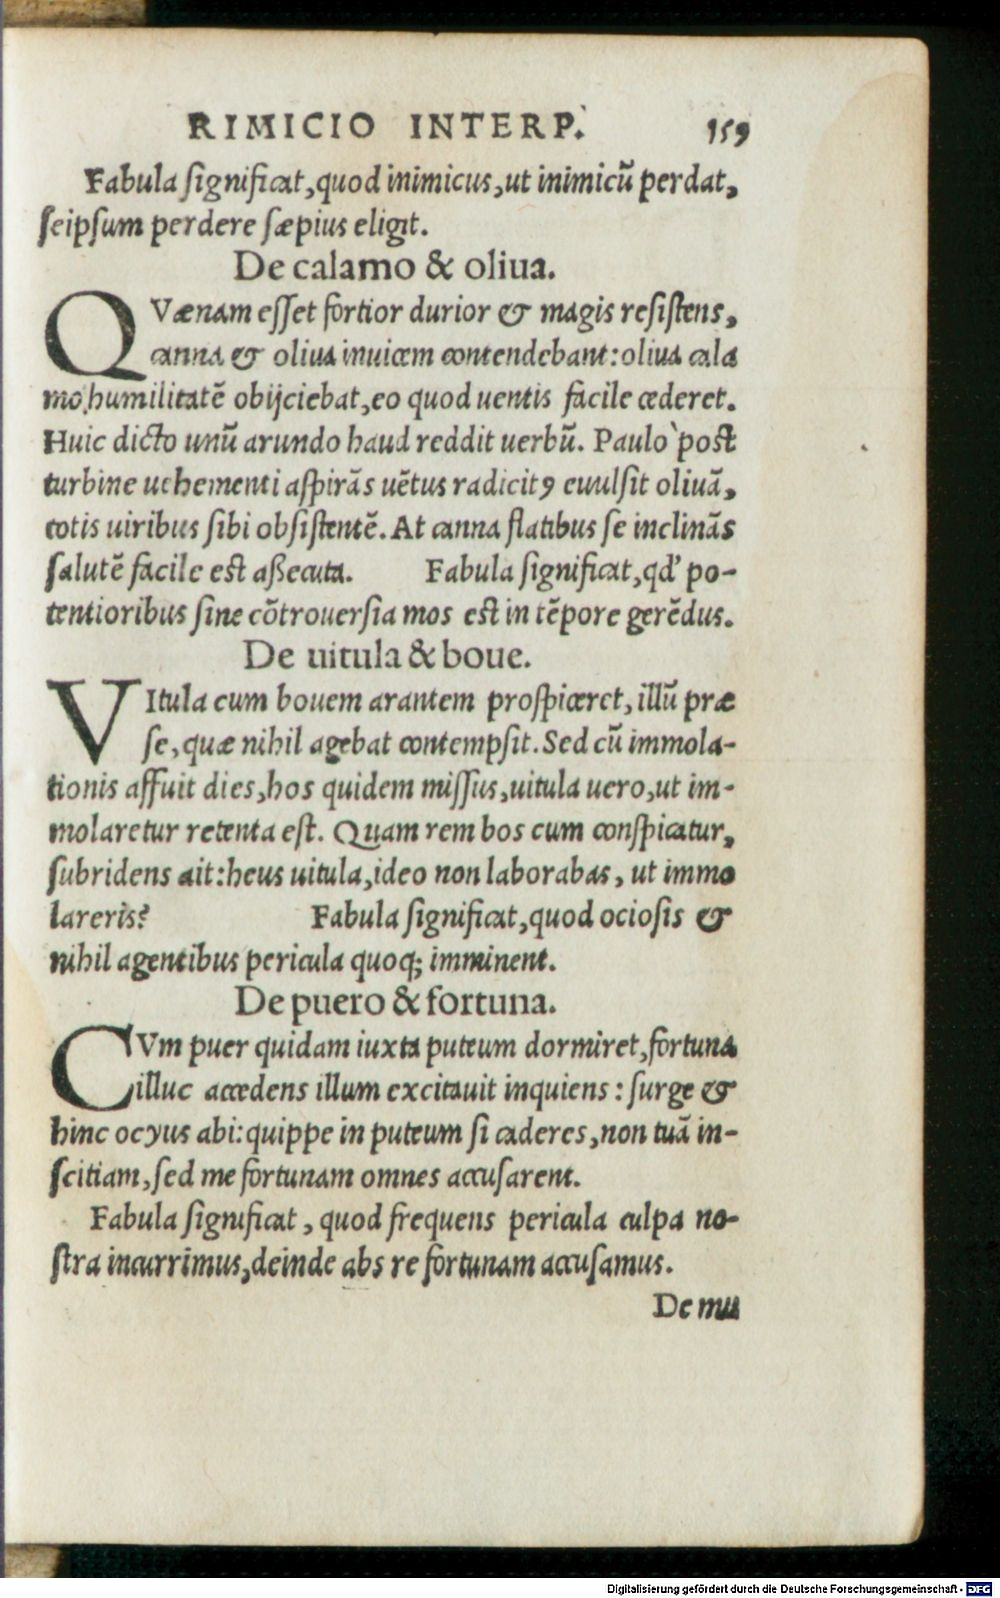 RIMICIO INTERP. 159
Fabula significat, quod inimicus, ut inimicũ perdat,
seipsum perdere sæpius eligit.
De calamo & oliua.
QVænam esset fortior durior & magis resistens,
canna & oliua inuicem contendebant: oliua cala
mo humilitatẽ obijciebat, eo quod uentis facile cederet.
Huic dicto unũ arundo haud reddit uerbũ. Paulo post
turbine uehementi aspirãs uẽtus radicitꝰ euulsit oliuã,
totis uiribus sibi obsistentẽ. At canna flatibus se inclinãs
salutẽ facile est aßecuta. Fabula significat, qd' po-
tentioribus sine cõtrouersia mos est in tẽpore gerẽdus.
De uitula & boue.
VItula cum bouem arantem prospiceret, illũ præ
se, quæ nihil agebat contempsit. Sed cũ immola-
tionis affuit dies, hos quidem missus, uitula uero, ut im-
molaretur retenta est. Quam rem bos cum conspicatur,
subridens ait: heus uitula, ideo non laborabas, ut immo
lareris? Fabula significat, quod ociosis &
nihil agentibus pericula quoq; imminent.
De puero & fortuna.
CVm puer quidam iuxta puteum dormiret, fortuna
illuc accedens illum excitauit inquiens: surge &
hinc ocyus abi: quippe in puteum si caderes, non tuã in-
scitiam, sed me fortunam omnes accusarent.
Fabula significat, quod frequens pericula culpa no-
stra incurrimus, deinde abs re fortunam accusamus.
De mu
Digitalisierung gefördert durch die Deutsche Forschungsgemeinschaft - DFG